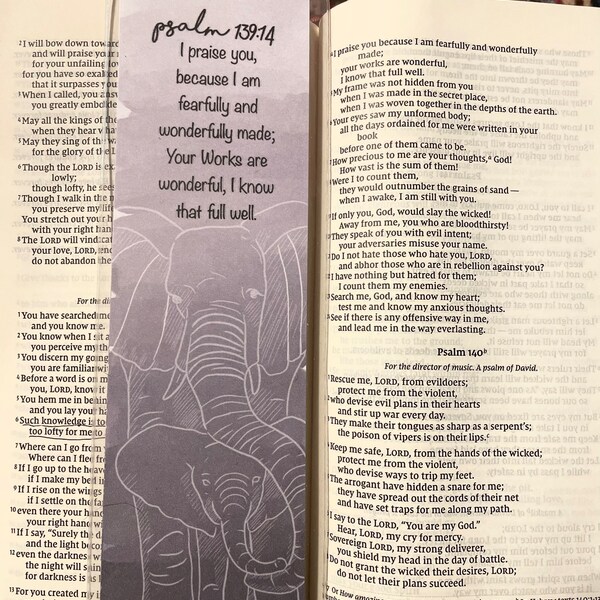 2 I will bow down
and will praise your
for your unfailing
for you have so exalted
that it surpasses
3 When I called, you
you greatly
4 May all the kings of
when they hear
5 May they sing of
for the glory of
6 Though the LORD is
lowly;
though lofty, he
7 Though I walk in the
you preserve my life
You stretch out your
with your right
8 The LORD will
your love, LORD,
do not abandon
For the
1 You have searched
and you know
2 You know when I sit
you perceive my
3 You discern my going
you are familiar
4 Before a word is on
you, LORD, know
5 You hem me in
and you lay your
6 Such knowledge is
too lofty for me
7 Where can I go
Where can I
8 If I go up to the
if I make my
9 If I rise on the
if I settle on the
10 even there your
your right hand
11 If I say, "Surely the
and the light
12 even the darkness
the night will
for darkness is
13 For you created my
psalm 139:14
I praise you,
because I am
fearfully and
wonderfully made;
Your Works are
wonderful, I know
that full well.
I praise you because I am fearfully and wonderfully
made;
your works are wonderful,
I know that full well.
My frame was not hidden from you
when I was made in the secret place,
when I was woven together in the depths of the earth.
Your eyes saw my unformed body;
all the days ordained for me were written in your
book
before one of them came to be.
How precious to me are your thoughts,a God!
How vast is the sum of them!
Were I to count them,
they would outnumber the grains of sand—
when I awake, I am still with you.
If only you, God, would slay the wicked!
Away from me, you who are bloodthirsty!
They speak of you with evil intent;
your adversaries misuse your name.
Do I not hate those who hate you, LORD,
and abhor those who are in rebellion against you?
I have nothing but hatred for them;
I count them my enemies.
Search me, God, and know my heart;
test me and know my anxious thoughts.
See if there is any offensive way in me,
and lead me in the way everlasting.
Psalm 140b
For the director of music. A psalm of David.
Rescue me, LORD, from evildoers;
protect me from the violent,
who devise evil plans in their hearts
and stir up war every day.
They make their tongues as sharp as a serpent's;
the poison of vipers is on their lips.c
Keep me safe, LORD, from the hands of the wicked;
protect me from the violent,
who devise ways to trip my feet.
The arrogant have hidden a snare for me;
they have spread out the cords of their net
and have set traps for me along my path.
I say to the LORD, "You are my God."
Hear, LORD, my cry for mercy.
Sovereign LORD, my strong deliverer,
you shield my head in the day of battle.
Do not grant the wicked their desires, LORD;
do not let their plans succeed.
Or How amazing